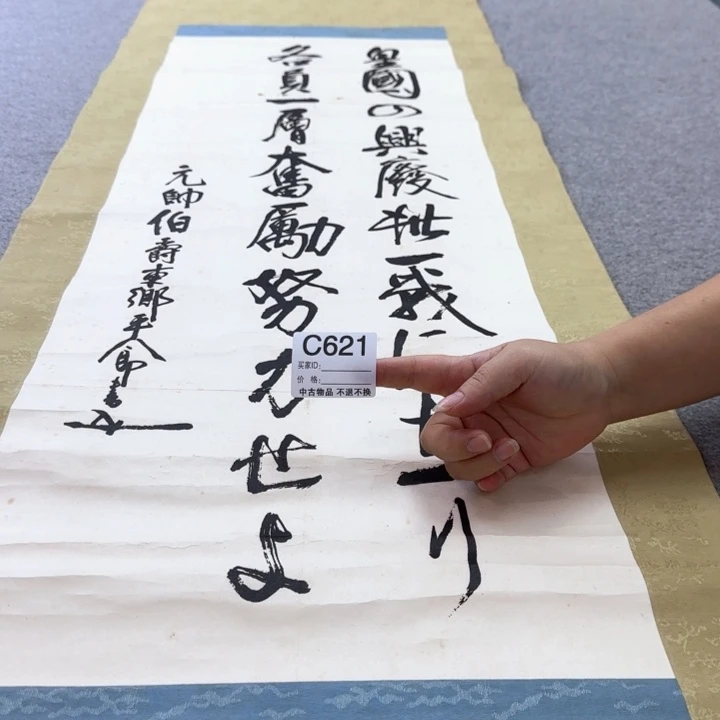 皇國の興廢此一戰に在り
各員一層奮勵努力せよ
元帥伯爵東郷平八郎書
C621
买家ID:
价 格:
中古物品 不退不换